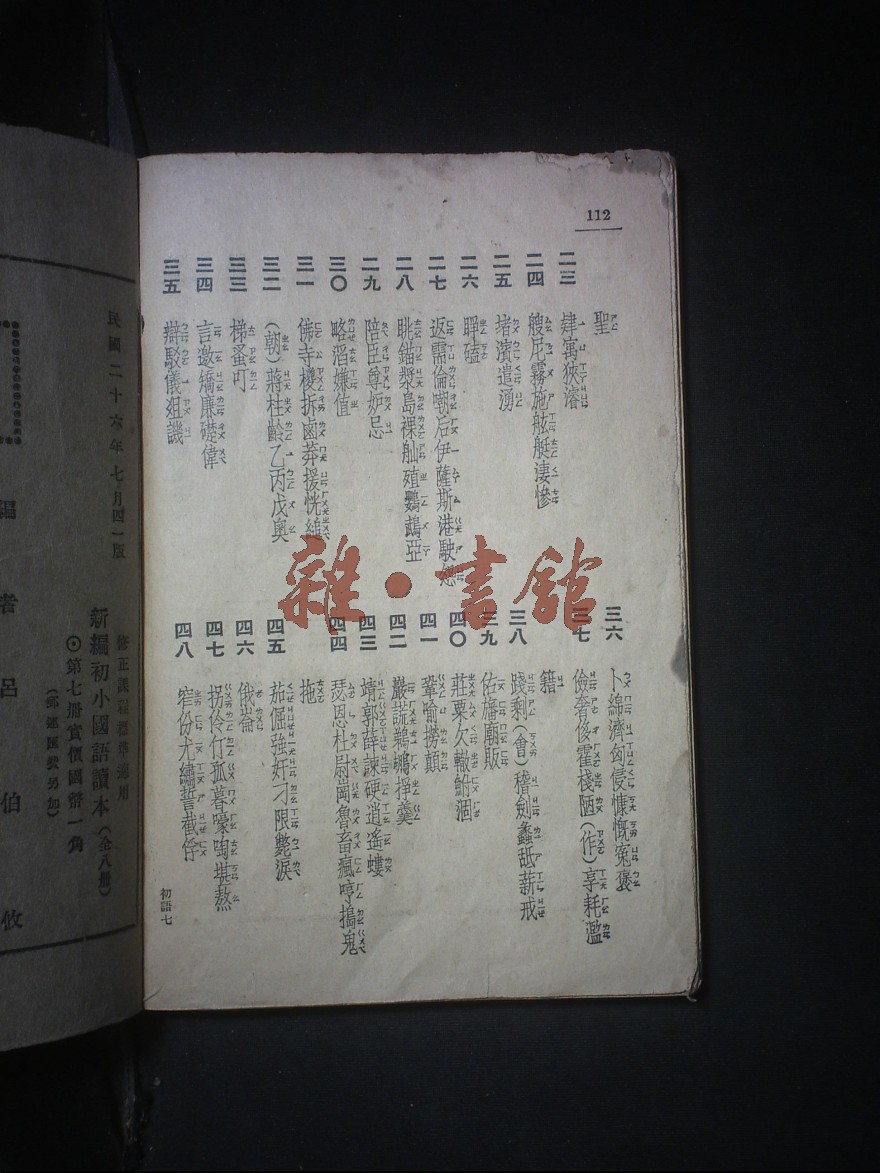 112
聖
二三 肄寓狹濬
二四 艘尼霧施舷艇淒慘
二五 堵濱遣湧
二六 睜磕
二七 返需倫嘲后伊薩斯港駛
二八 眺錨槳島裸舢殖鸚鵡亞
二九 陪臣尊妒忌
三〇 略滔嫌值
三一 佛寺梭拆鹵莽援恍
三二 (朝)蔣柱齡乙丙戊奧
三三 梯蚤叮
三四 言邀矯廉礎偉
三五 辯駁儀俎譏
三六 卜綿濟匈侵慷慨冤褒
三七 儉奢侈霍棧陋(作)享耗濫
籍
三八 踐剩(會)稽劍蠡舐薪戒
三九 佑旛廟販
四〇 莊栗欠轍鮒涸
四一 鞏喻撈顛
四二 嚴謊鵜鶘掙羹
四三 靖郭薛諫硬逍遙螻
四四 瑟恩杜尉岡魯畜瘋哼搗鬼
拖
四五 茄倔強奸刁限斃淚
四六 俄崙
四七 拐伶仃孤暮嚎啕堪熬
四八 窄份尤繡誓截俘
初語七
修正課程標準適用
新編初小國語讀本(全八冊)
⊙第七冊實價國幣一角
(郵運匯費另加)
民國二十六年七月四一版
編者呂伯攸
雜·書館